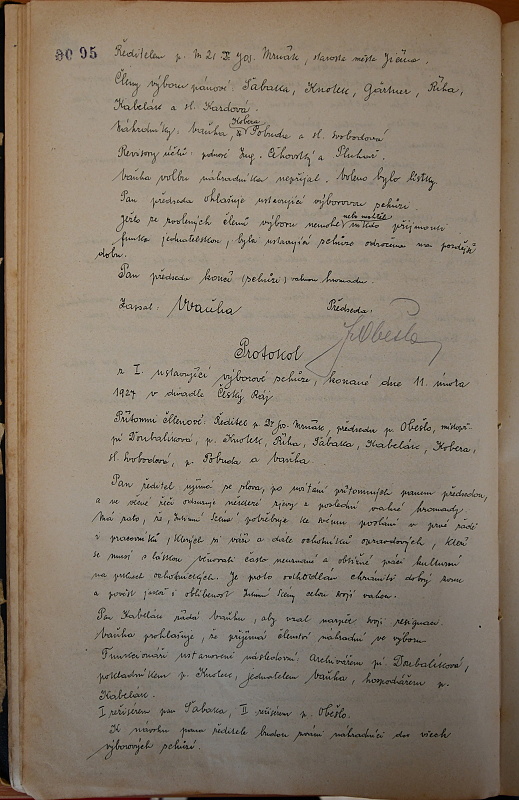 90 95
Ředitelem p. Jos. Mrňák, starosta města Jičína.
Členy výboru pánové: Sabaska, Knotek, Gärtner, Říha,
Kabelák a sl. Kazdová.
Kobera
Náhradníky: Vaňha, Pobuda a sl. Svobodová
Revisory účtů: pánové Ing. Čihovský a Pluhař.
Vaňha volbu náhradníka nepřijal. Voleno bylo lístky.
Pan předseda ohlašuje ustavující výborovou schůzi.
Ježto ze zvolených členů výboru nemohl nikdo přijmouti
funkci jednatelskou, byla ustavující schůze odročena na pozdější
dobu.
Pan předseda končí (schůzi) valnou hromadu.
Zapsal: Vaňha Předseda:
J. Obešlo
Protokol
z I. ustavující výborové schůze, konané dne 11. února
1927 v divadle Český Ráj
Přítomni členové: Ředitel p. Dr Jos. Mrňák, předseda p. Obešlo, místopř.
pí Doubalíková, p. Knotek, Říha, Sabaska, Kabelák, Kobera,
sl. Svobodová, p. Pobuda a Vaňha.
Pan ředitel ujímá se slova, po uvítání přítomných panem předsedou,
a ve věcné řeči odsuzuje některé zjevy z poslední valné hromady.
Má za to, že potřebuje ke svému poslání v prvé řadě
pracovníků, kterých si váží a dále ochotníků opravdových, kteří
se musí s láskou věnovati často neúnavné a obtížné práci kulturní
na prknech ochotnických. Je proto odhodlán chrániti dobrý
a pověst jakož i oblíbenost Scény celou svojí vahou.
Pan Kabelák žádá Vaňhu, aby vzal nazpět svoji resignaci.
Vaňha prohlašuje, že přijímá členství náhradní ve výboru
Funkcionáři ustanoveni následovní: Archivářem pí Doubalíková,
pokladníkem p. Knotek, jednatelem Vaňha, hospodářem p.
Kabelák.
I režisérem pan Sabaska, II režisérem p. Obešlo.
K návrhu pana ředitele budou zváni náhradníci do všech
výborových schůzí.